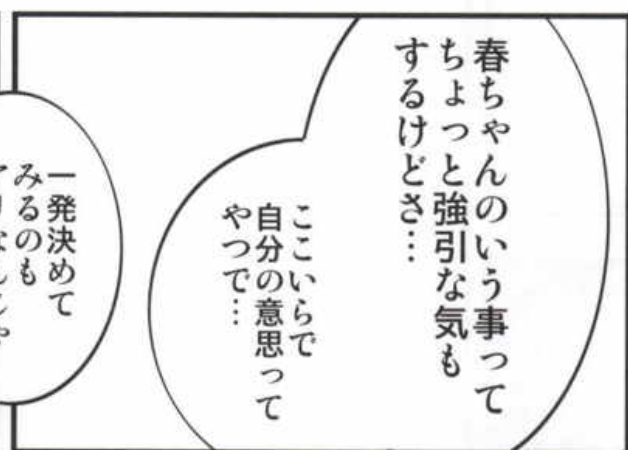 春ちゃんのいう事って
ちょっと強引な気も
するけどさ…
ここいらで
自分の意思って
やつで…
一発決めて
みるのも